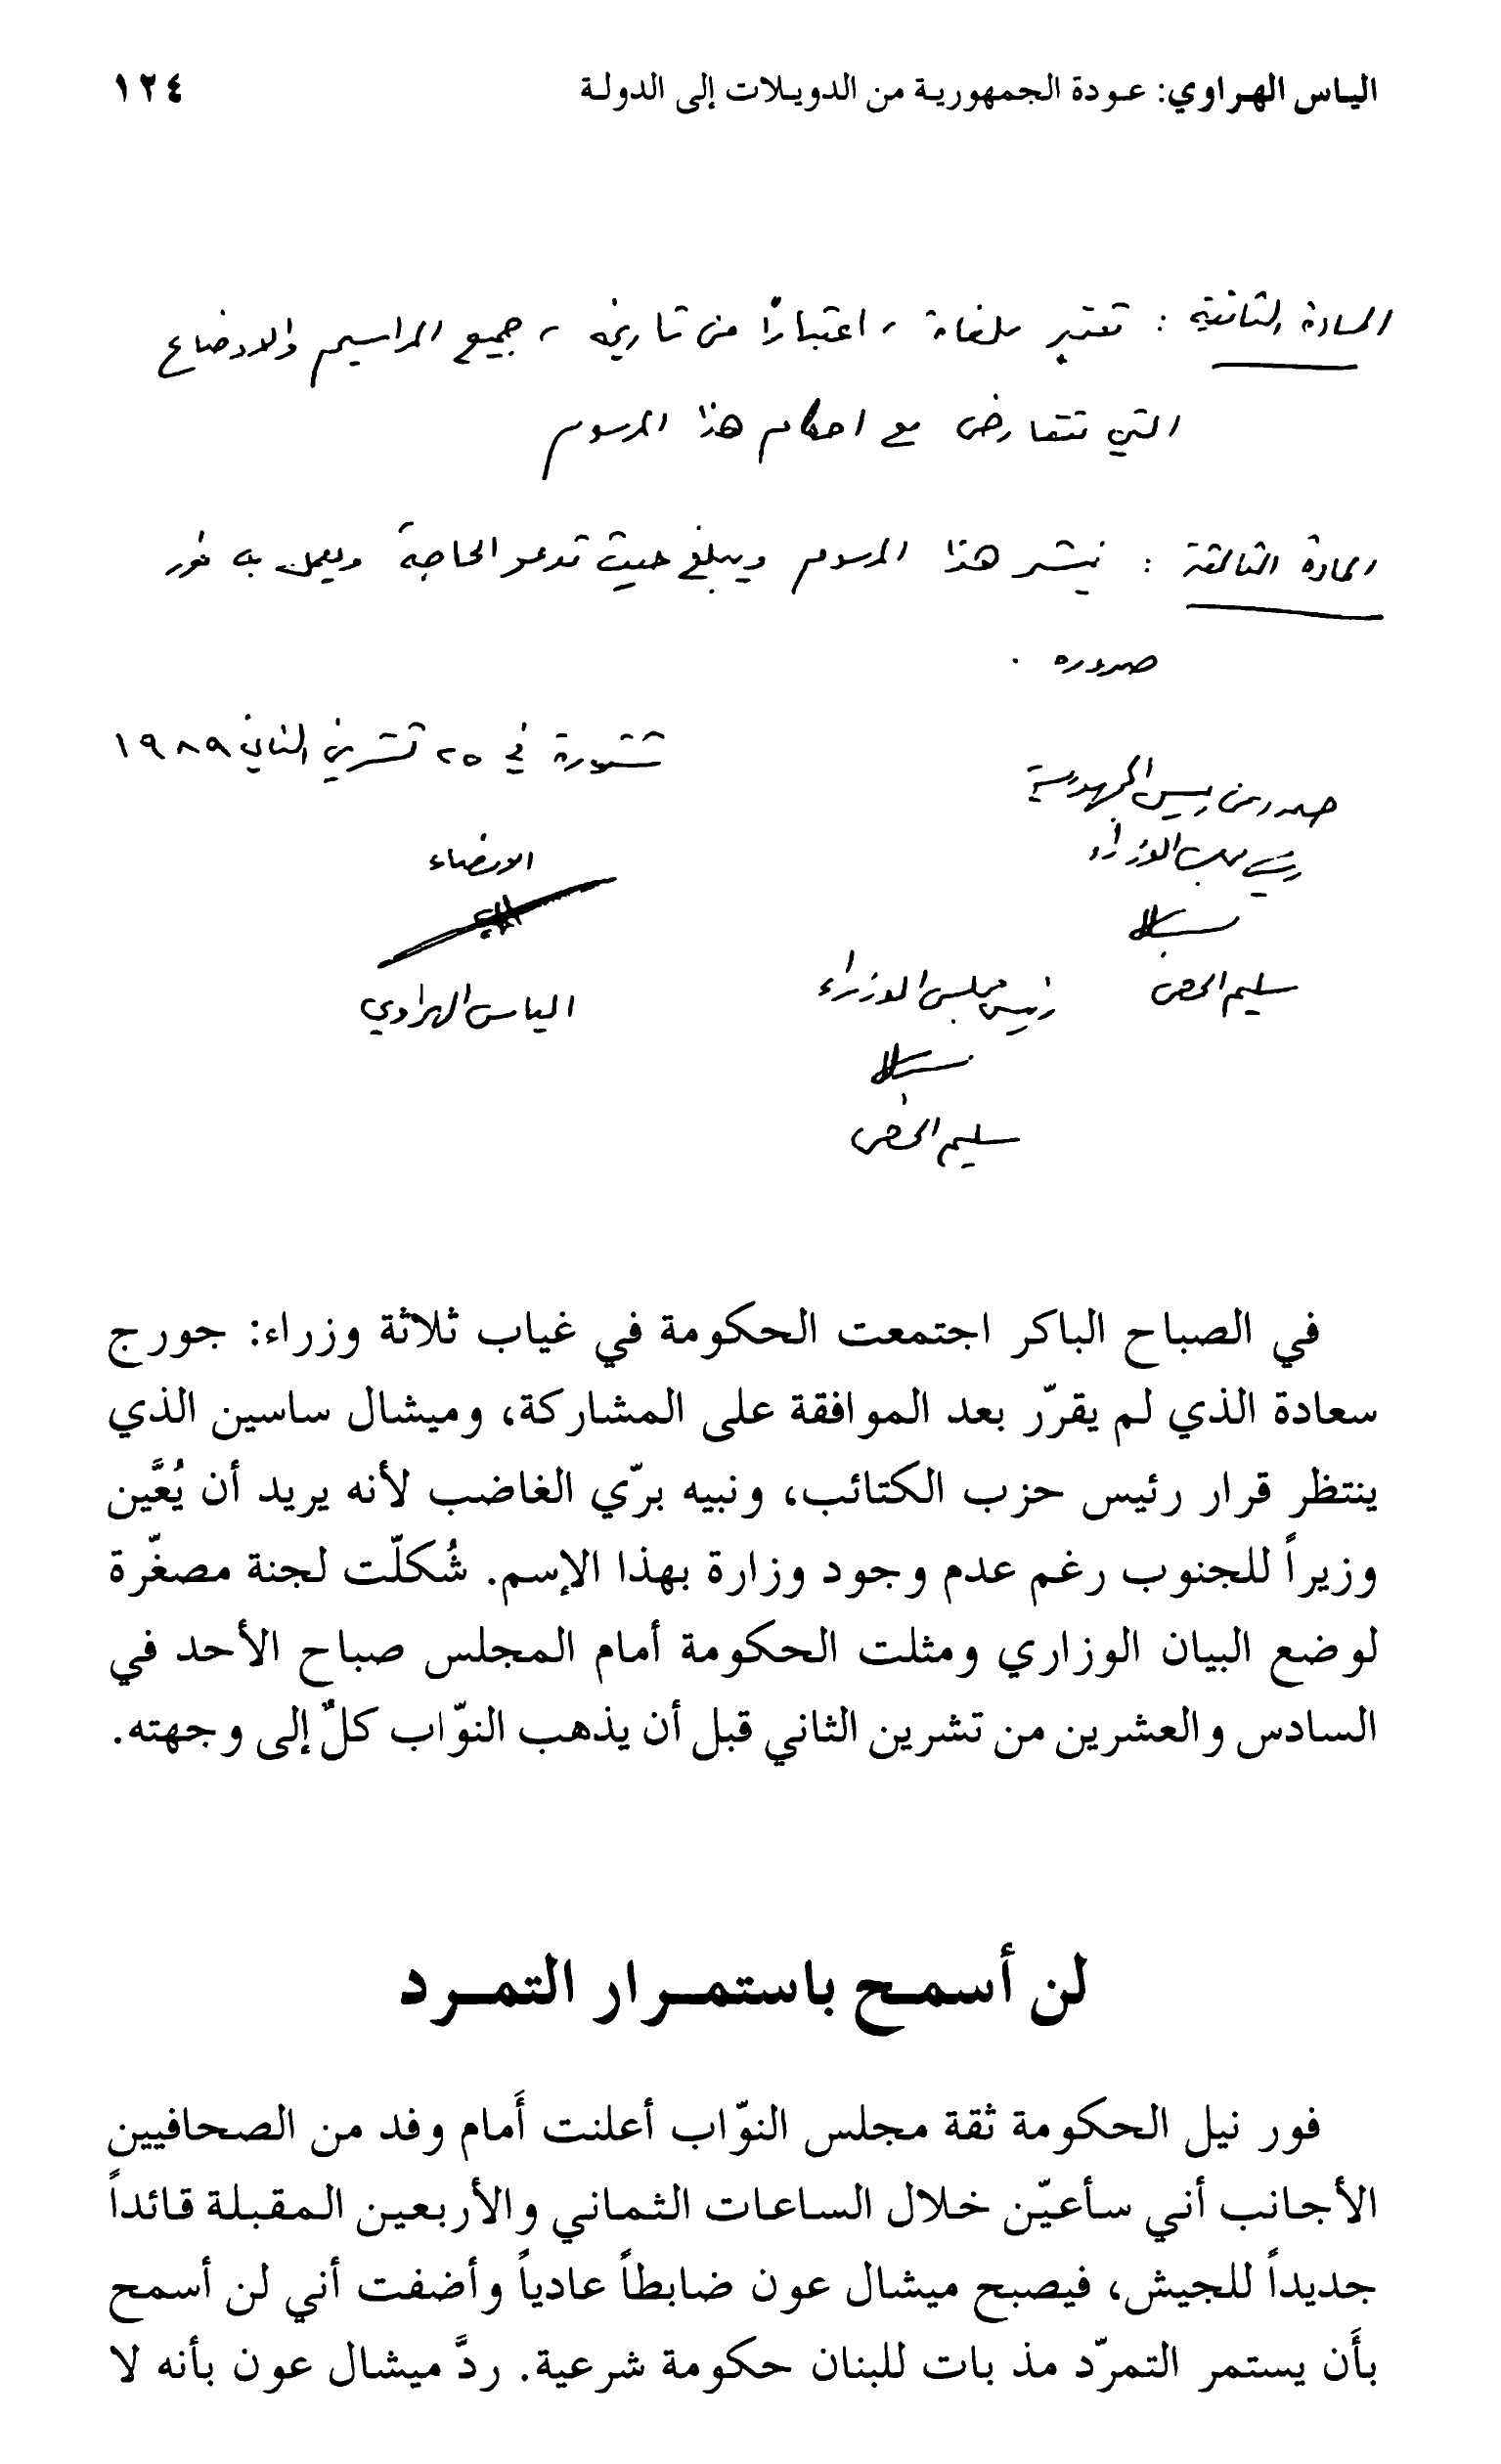 الياس الهراوي: عودة الجمهورية من الدويلات إلى الدولة ١٢٤
المادة الثانية : تعتبر ملغاة ، اعتباراً من تاريخه ، جميع المراسيم والاوضاع
التي تتعارض مع احكام هذا المرسوم
المادة الثالثة : ينشر هذا المرسوم ويبلغ حيث تدعو الحاجة ويعمل به فور
صدوره .
شتورة في ٢٥ تشرين الثاني ١٩٨٩
صدر عن رئيس الجمهورية
رئيس مجلس الوزراء
الامضاء
سليم الحص
رئيس مجلس الوزراء
الياس الهراوي
سليم الحص
في الصباح الباكر اجتمعت الحكومة في غياب ثلاثة وزراء: جورج
سعادة الذي لم يقرّر بعد الموافقة على المشاركة، وميشال ساسين الذي
ينتظر قرار رئيس حزب الكتائب، ونبيه برّي الغاضب لأنه يريد أن يُعَّين
وزيراً للجنوب رغم عدم وجود وزارة بهذا الإسم. شُكلّت لجنة مصغّرة
لوضع البيان الوزاري ومثلت الحكومة أمام المجلس صباح الأحد في
السادس والعشرين من تشرين الثاني قبل أن يذهب النوّاب كلٌ إلى وجهته.
لن أسمح باستمرار التمرد
فور نيل الحكومة ثقة مجلس النوّاب أعلنت أَمام وفد من الصحافيين
الأجانب أني سأعيّن خلال الساعات الثماني والأربعين المقبلة قائداً
جديداً للجيش، فيصبح ميشال عون ضابطاً عادياً وأضفت أني لن أسمح
بأَن يستمر التمرّد مذ بات للبنان حكومة شرعية. ردَّ ميشال عون بأنه لا